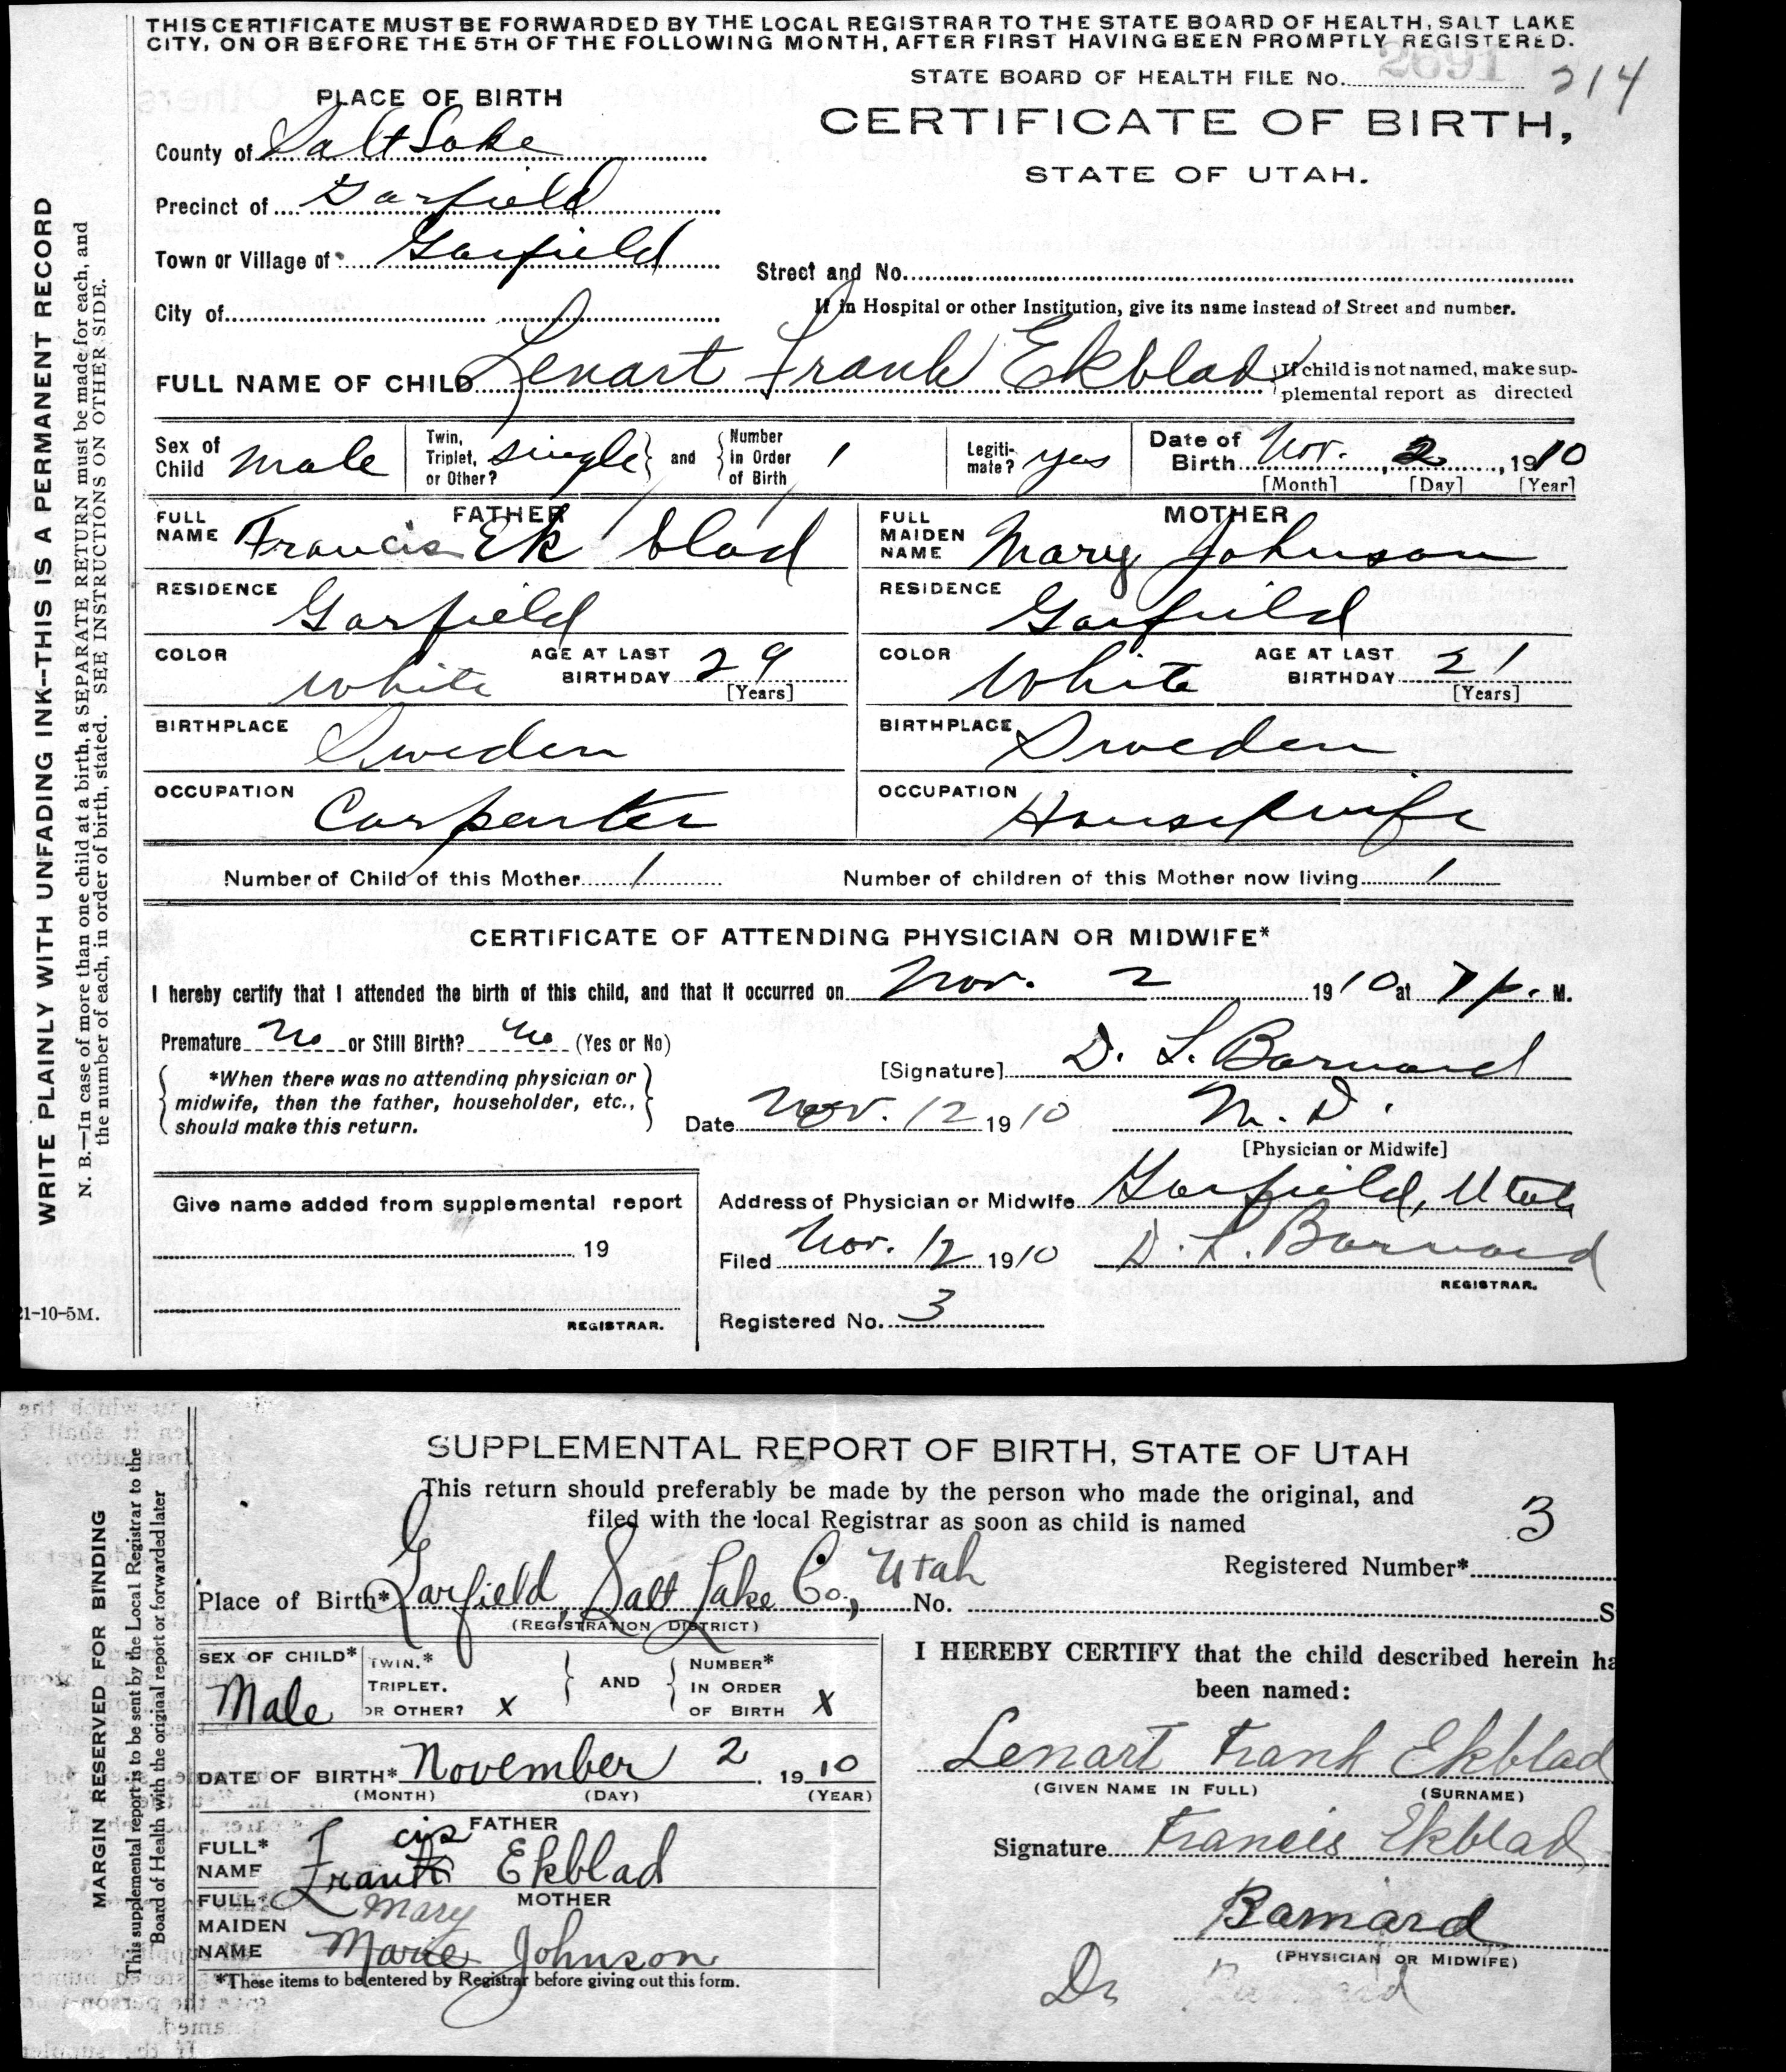 THIS CERTIFICATE MUST BE FORWARDED BY THE LOCAL REGISTRAR TO THE STATE BOARD OF HEALTH, SALT LAKE
CITY, ON OR BEFORE THE 5TH OF THE FOLLOWING MONTH, AFTER FIRST HAVING BEEN PROMPTLY REGISTERED.
STATE BOARD OF HEALTH FILE No. 2691 214
PLACE OF BIRTH
CERTIFICATE OF BIRTH,
STATE OF UTAH.
County of Salt Lake
Precinct of Garfield
Town or Village of Garfield
Street and No.
City of
If in Hospital or other Institution, give its name instead of Street and number.
FULL NAME OF CHILD Lenart Frank Ekblad
If child is not named, make sup-
plemental report as directed
Sex of Child Male
Twin, Triplet, or Other? single and Number in Order of Birth 1
Legiti-mate? yes
Date of Birth Nov. 2, 1910
[Month] [Day] [Year]
FATHER
FULL NAME Francis Ek blad
RESIDENCE Garfield
COLOR White AGE AT LAST BIRTHDAY 29
[Years]
BIRTHPLACE Sweden
OCCUPATION Carpenter
MOTHER
FULL MAIDEN NAME Mary Johnson
RESIDENCE Garfield
COLOR White AGE AT LAST BIRTHDAY 21
[Years]
BIRTHPLACE Sweden
OCCUPATION Housewife
Number of Child of this Mother 1 Number of children of this Mother now living 1
CERTIFICATE OF ATTENDING PHYSICIAN OR MIDWIFE*
I hereby certify that I attended the birth of this child, and that it occurred on Nov. 2 1910 at 7 p. M.
Premature No or Still Birth? No (Yes or No)
*When there was no attending physician or
midwife, then the father, householder, etc.,
should make this return.
[Signature] D. L. Barnard
Date Nov. 12 1910 M. D.
[Physician or Midwife]
Give name added from supplemental report
19
REGISTRAR.
Address of Physician or Midwife Garfield, Utah
Filed Nov. 12 1910 D. L. Barnard
REGISTRAR.
Registered No. 3
21-10-5M.
WRITE PLAINLY WITH UNFADING INK--THIS IS A PERMANENT RECORD
N. B.—In case of more than one child at a birth, a SEPARATE RETURN must be made for each, and
the number of each, in order of birth, stated. SEE INSTRUCTIONS ON OTHER SIDE.
SUPPLEMENTAL REPORT OF BIRTH, STATE OF UTAH
This return should preferably be made by the person who made the original, and
filed with the local Registrar as soon as child is named
3
Registered Number*
Place of Birth* Garfield, Salt Lake Co., Utah No. S
(REGISTRATION DISTRICT)
SEX OF CHILD* Male
TWIN.* TRIPLET. OR OTHER? X AND NUMBER* IN ORDER OF BIRTH X
DATE OF BIRTH* November 2 1910
(MONTH) (DAY) (YEAR)
FATHER
FULL* NAME Frank cis Ekblad
MOTHER
FULL* MAIDEN NAME Mary Marie Johnson
*These items to be entered by Registrar before giving out this form.
I HEREBY CERTIFY that the child described herein ha
been named:
Lenart Frank Ekblad
(GIVEN NAME IN FULL) (SURNAME)
Signature Francis Ekblad
Barnard
(PHYSICIAN OR MIDWIFE)
Dr
MARGIN RESERVED FOR BINDING
This supplemental report is to be sent by the Local Registrar to the
Board of Health with the original report or forwarded later